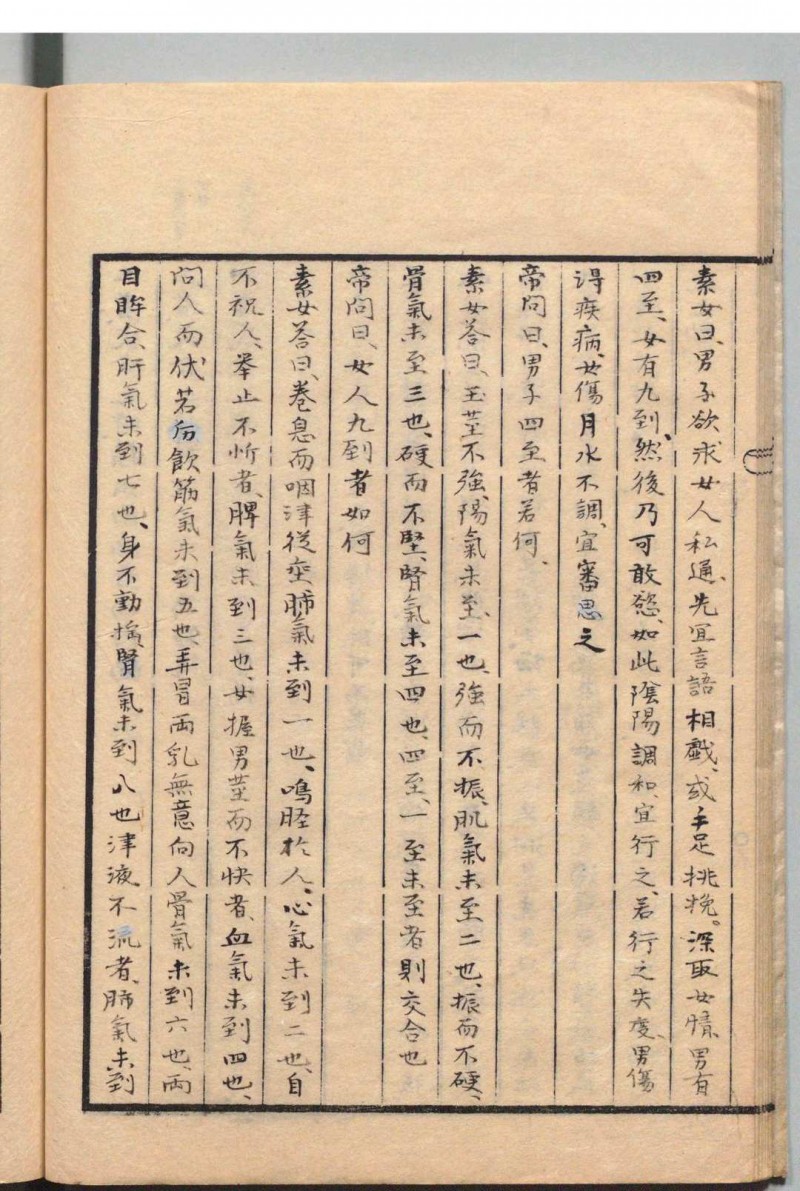 素女曰、男子欲求女人私通、先宜言語相戲、或手足挑挽。深取女情、男有
四至、女有九到、然後乃可敢慾、如此陰陽調和、宜行之、若行之失度、男傷
得疾病、女傷月水不調、宜審思之
帝问曰、男子四至者若何、
素女荅曰、玉茎不強、陽氣未至、一也、強而不振、肌氣未至二也、振而不硬、
骨氣未至三也、硬而不堅、腎氣未至四也、四至、一至未至者則交合也
帝问曰、女人九到者如何
素女荅曰、卷息而咽津從臾、肺氣未到一也、鳴胵於人、心氣未到二也、自
不祝人、举止不忻者、脾氣未到三也、女握男茎而不快者、血氣未到四也、
问人而伏若后飲筋氣未到五也、弄冒両乳無意向人骨氣未到六也、両
目眸合、肝氣未到七也、身不動摇、腎氣未到八也津液不流者、肺氣未到